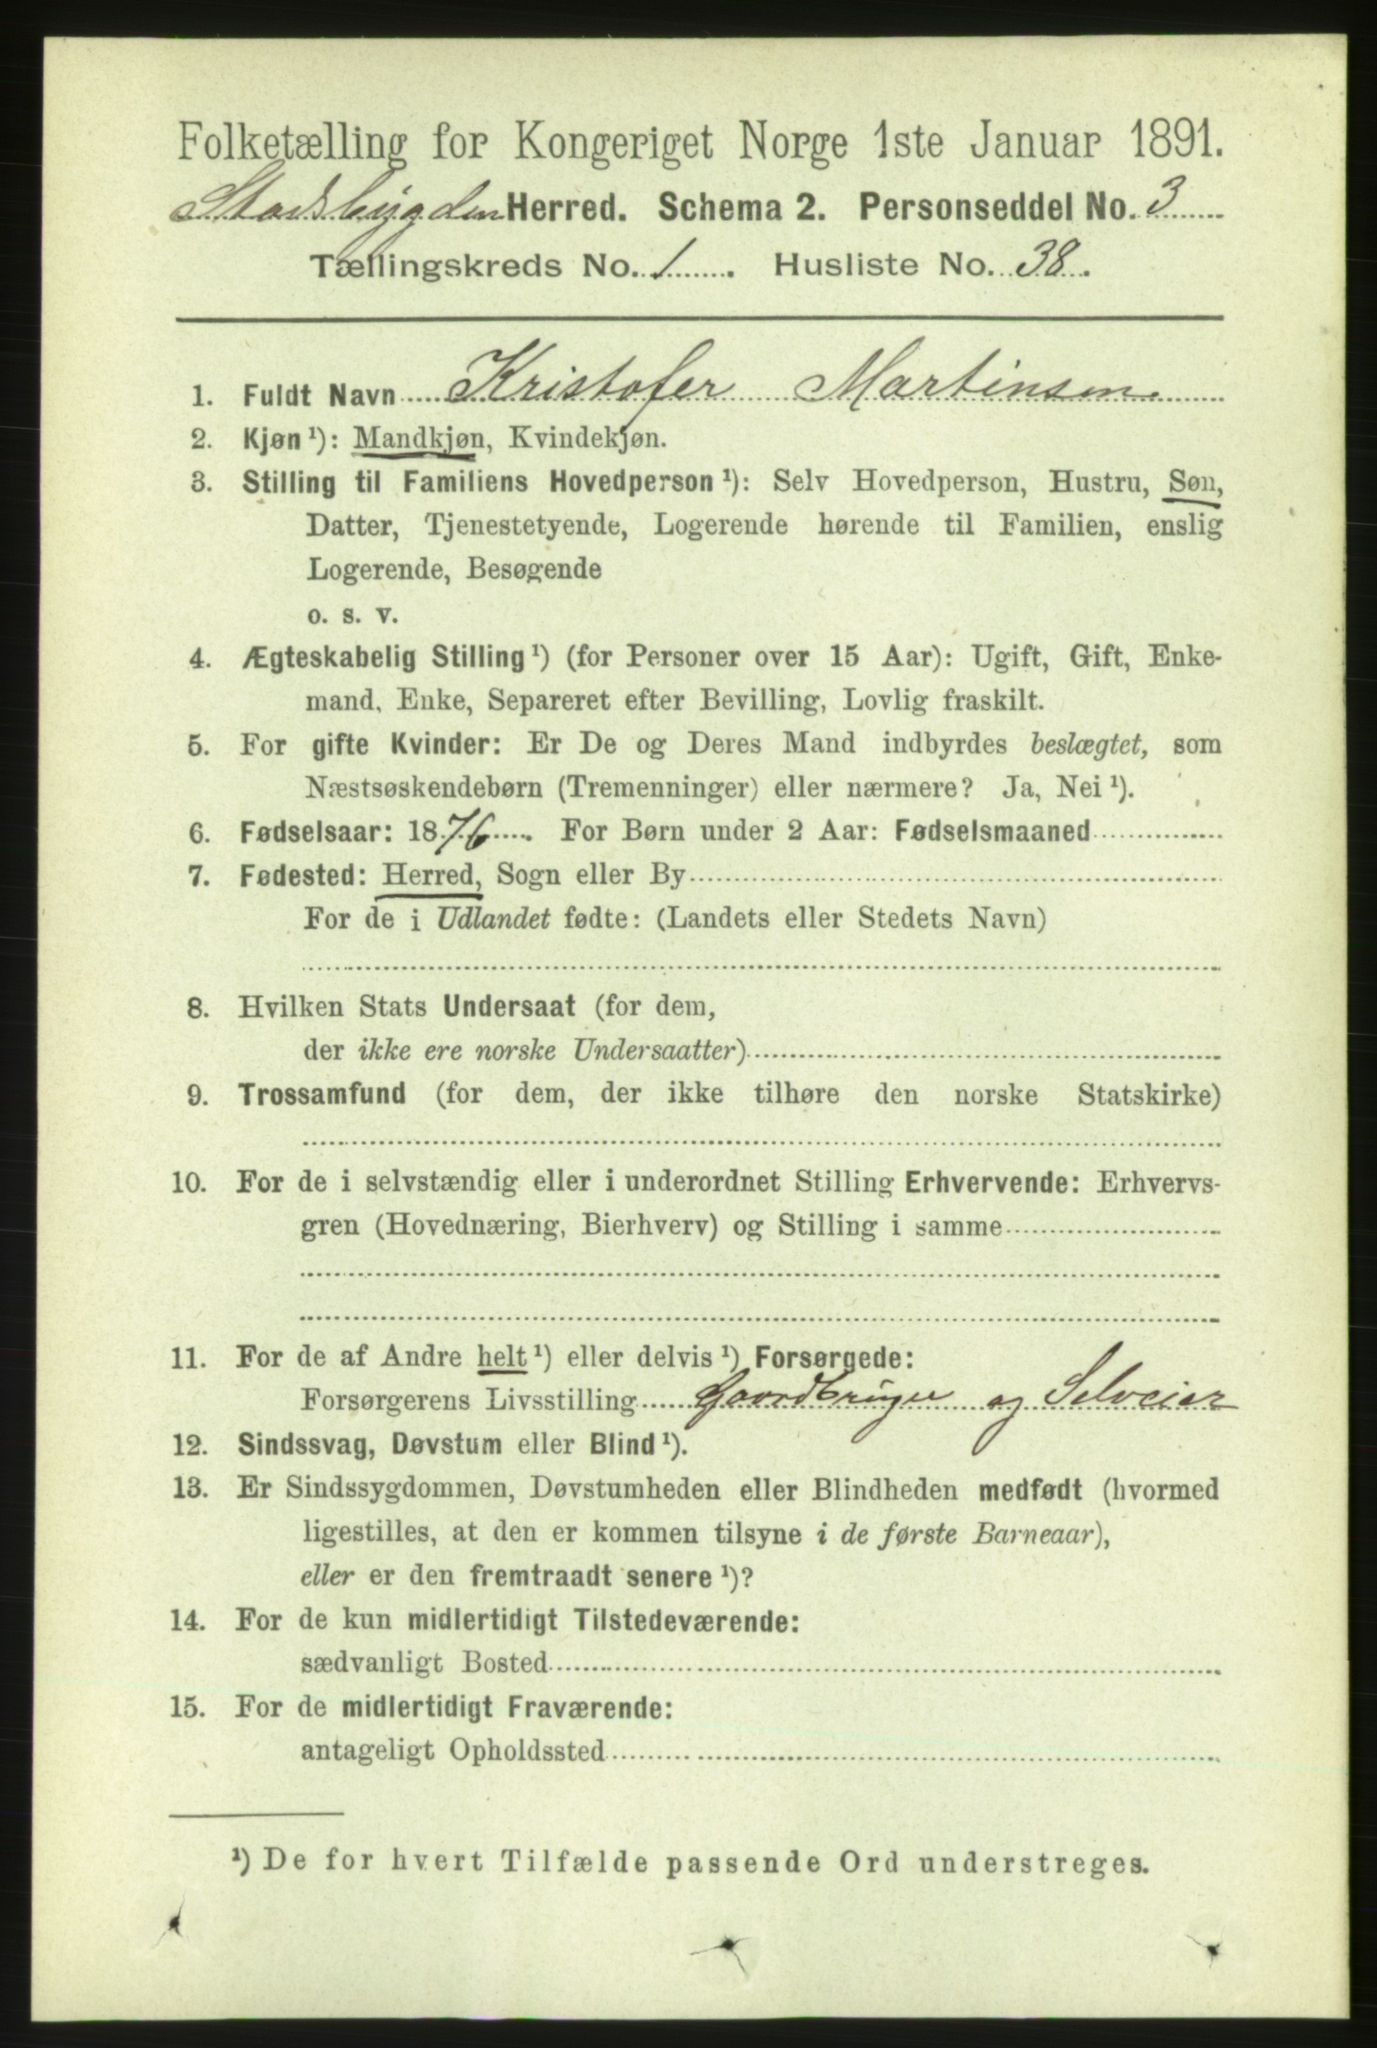 Folketælling for Kongeriget Norge 1ste Januar 1891.
Stadsbygden Herred. Schema 2. Personseddel No. 3
Tællingskreds No. 1. Husliste No. 38.
1. Fuldt Navn Kristofer Martinsen
2. Kjøn ¹): Mandkjøn, Kvindekjøn.
3. Stilling til Familiens Hovedperson ¹): Selv Hovedperson, Hustru, Søn,
Datter, Tjenestetyende, Logerende hørende til Familien, enslig
Logerende, Besøgende
o. s. v.
4. Ægteskabelig Stilling ¹) (for Personer over 15 Aar): Ugift, Gift, Enke-
mand, Enke, Separeret efter Bevilling, Lovlig fraskilt.
5. For gifte Kvinder: Er De og Deres Mand indbyrdes beslægtet, som
Næstsøskendebørn (Tremenninger) eller nærmere? Ja, Nei ¹).
6. Fødselsaar: 1876. For Børn under 2 Aar: Fødselsmaaned
7. Fødested: Herred, Sogn eller By
For de i Udlandet fødte: (Landets eller Stedets Navn)
8. Hvilken Stats Undersaat (for dem,
der ikke ere norske Undersaatter)
9. Trossamfund (for dem, der ikke tilhøre den norske Statskirke)
10. For de i selvstændig eller i underordnet Stilling Erhvervende: Erhvervs-
gren (Hovednæring, Bierhverv) og Stilling i samme
11. For de af Andre helt ¹) eller delvis ¹) Forsørgede:
Forsørgerens Livsstilling Gaardbruger og Selveier
12. Sindssvag, Døvstum eller Blind ¹).
13. Er Sindssygdommen, Døvstumheden eller Blindheden medfødt (hvormed
ligestilles, at den er kommen tilsyne i de første Barneaar),
eller er den fremtraadt senere ¹)?
14. For de kun midlertidigt Tilstedeværende:
sædvanligt Bosted
15. For de midlertidigt Fraværende:
antageligt Opholdssted
¹) De for hvert Tilfælde passende Ord understreges.